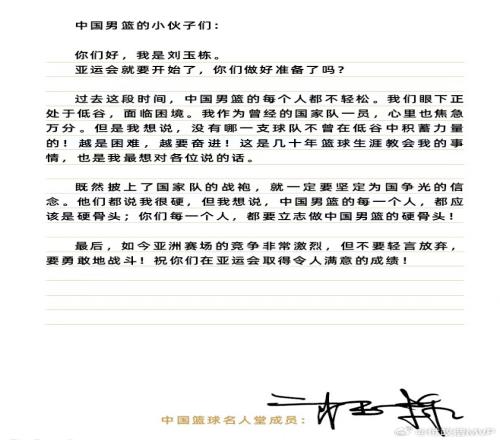 中国男篮的小伙子们：
你们好，我是刘玉栋。
亚运会就要开始了，你们做好准备了吗？
过去这段时间，中国男篮的每个人都不轻松。我们眼下正
处于低谷，面临困境。我作为曾经的国家队一员，心里也焦急
万分。但是我想说，没有哪一支球队不曾在低谷中积蓄力量
的！越是困难，越要奋进！这是几十年篮球生涯教会我的事
情，也是我最想对各位说的话。
既然披上了国家队的战袍，就一定要坚定为国争光的信
念。他们都说我很硬，但我想说，中国男篮的每一个人，都应
该是硬骨头；你们每一个人，都要立志做中国男篮的硬骨头！
最后，如今亚洲赛场的竞争非常激烈，但不要轻言放弃，
要勇敢地战斗！祝你们在亚运会取得令人满意的成绩！
中国篮球名人堂成员：